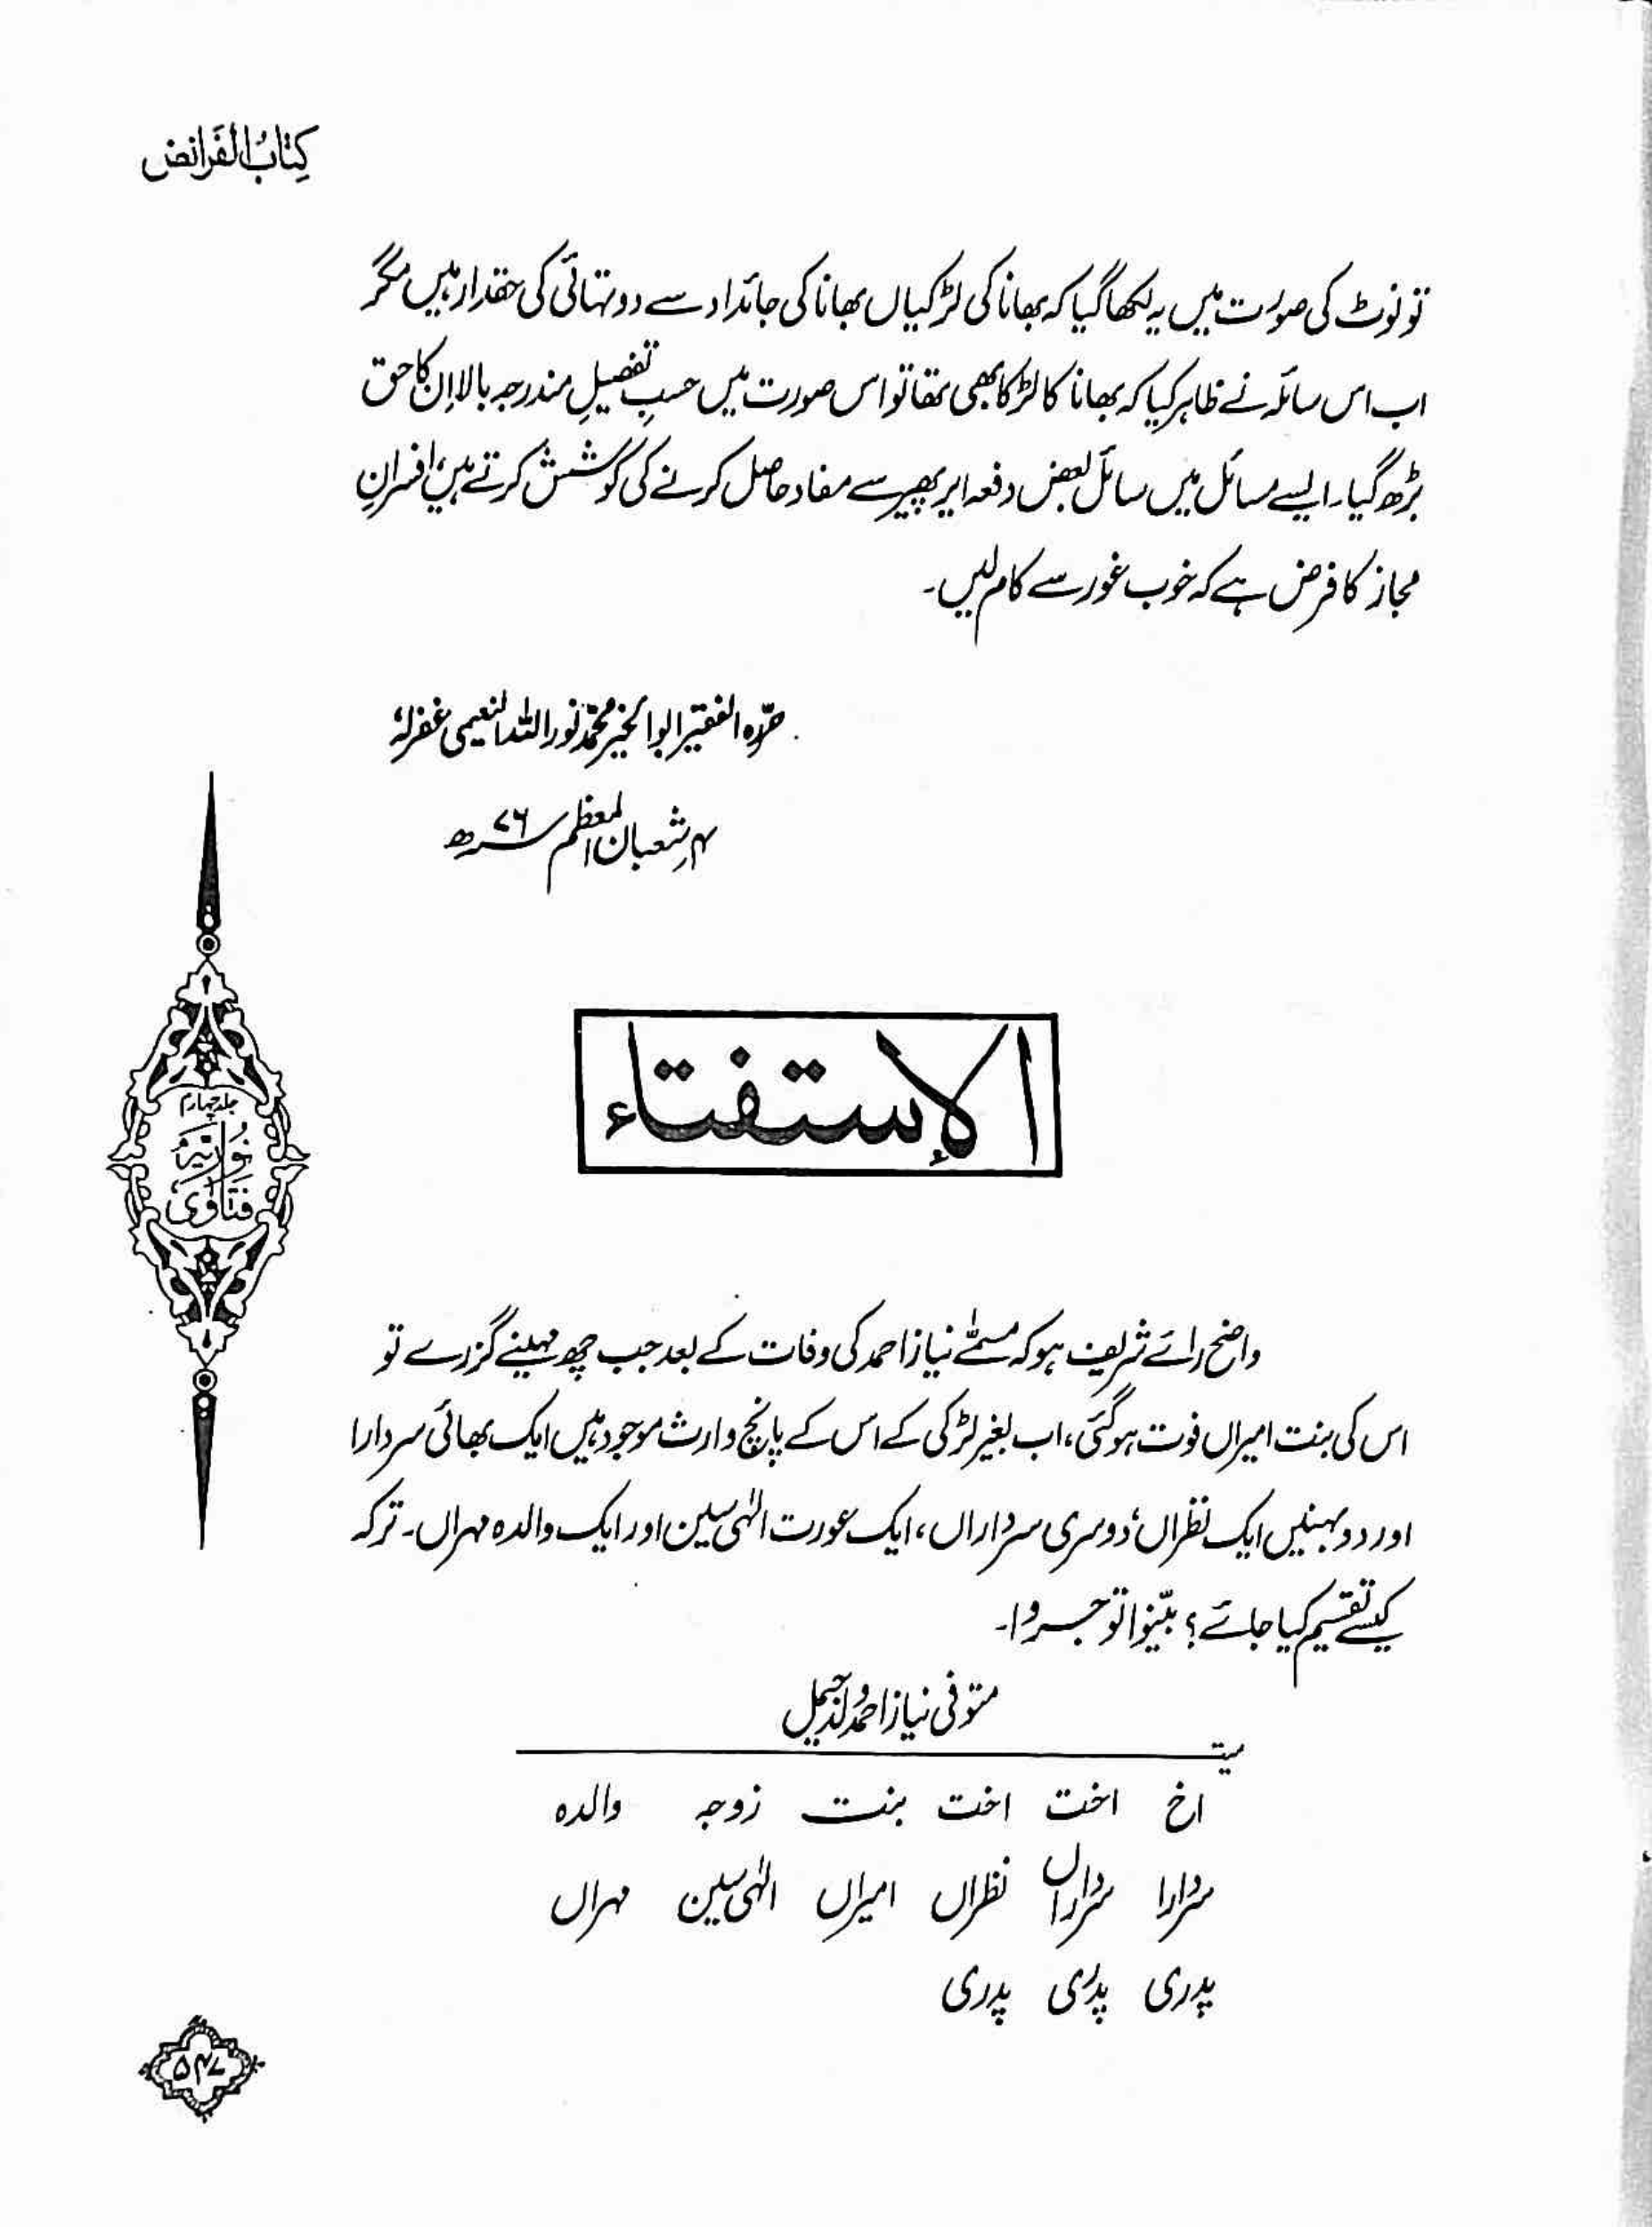 کِتَابُ الفَرائض
تو نوٹ کی صورت میں یہ لکھا گیا کہ بھانا کی لڑکیاں بھانا کی جائداد سے دو تہائی کی حقدار ہیں مگر
اب اس سائلہ نے ظاہر کیا کہ بھانا کا لڑکا بھی تھا تو اس صورت میں حسبِ تفصیلِ مندرجہ بالا ان کا حق
بڑھ گیا۔ ایسے مسائل میں سائل بعض دفعہ ایر پھیر سے مفاد حاصل کرنے کی کوشش کرتے ہیں، افسرانِ
مجاز کا فرض ہے کہ خوب غور سے کام لیں۔
حرّرہ الفقیر ابوالخیر محمّد نور اللہ النعیمی غفرلہٗ
۴ر شعبان المعظم ۷۶ھ
الإستفتاء
جلد چہارم
نُورِیَّہ
فتاوٰی
واضح رائے شریف ہو کہ مسمّٰے نیاز احمد کی وفات کے بعد جب چھ مہینے گزرے تو
اس کی بنت امیراں فوت ہوگئی، اب بغیر لڑکی کے اس کے پانچ وارث موجود ہیں ایک بھائی سردارا
اور دو بہنیں ایک نظراں، دوسری سرداراں، ایک عورت الٰہی سین اور ایک والدہ مہراں۔ ترکہ
کیسے تقسیم کیا جائے؟ بیّنوا توجروا۔
متوفی نیاز احمد ولد جمیل
میت
اخ اخت اخت بنت زوجہ والدہ
سردارا سرداراں نظراں امیراں الٰہی سین مہراں
پدری پدری پدری
۵۴۷